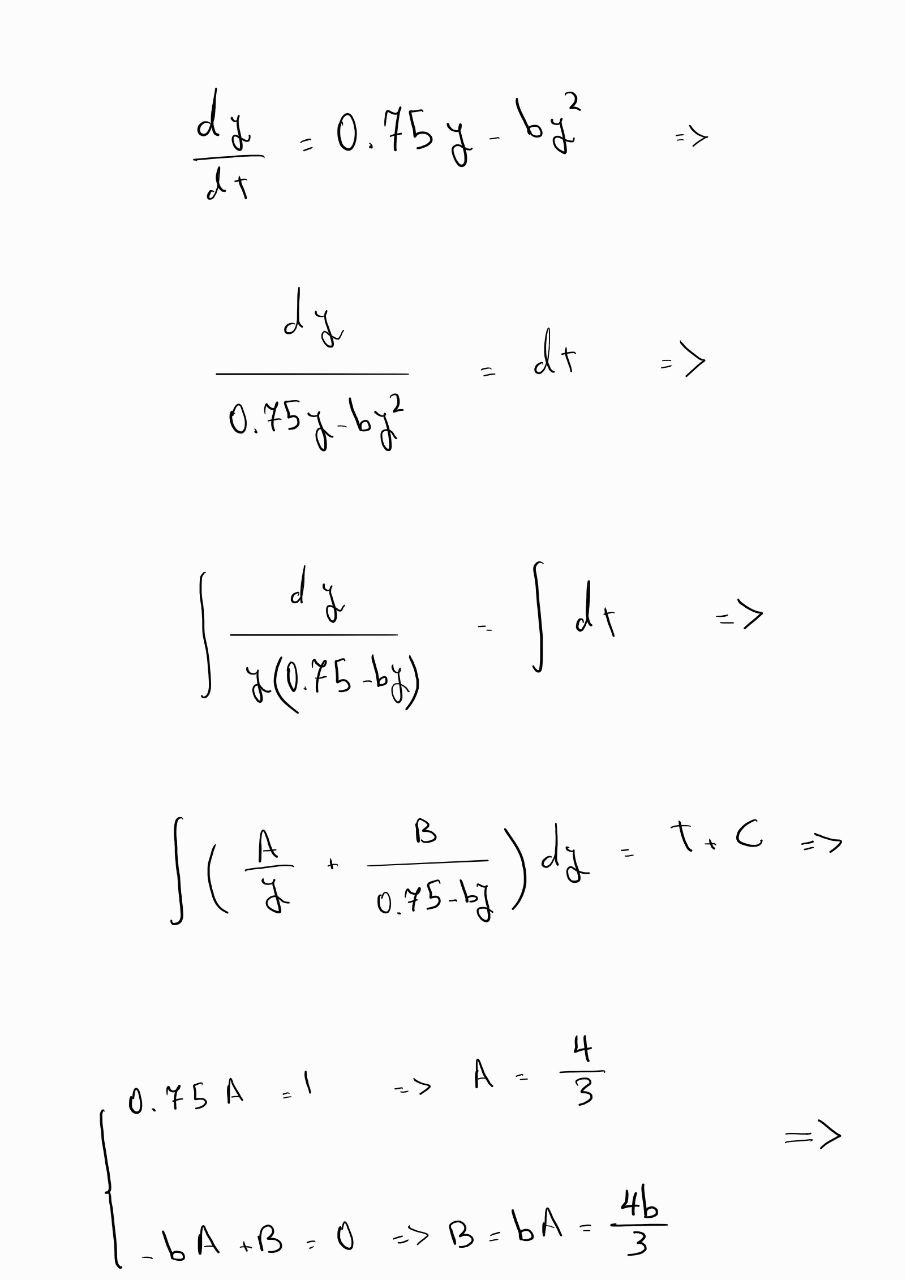 dy/dt = 0.75y - by² =>
dy/(0.75y - by²) = dt =>
∫ dy/(y(0.75 - by)) = ∫ dt =>
∫ (A/y + B/(0.75 - by)) dy = t + C =>
{ 0.75A = 1 => A = 4/3
-bA + B = 0 => B = bA = 4b/3 =>